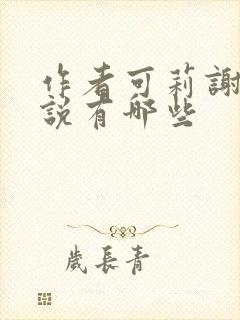 作者可莉謝
說有哪些
歲長青